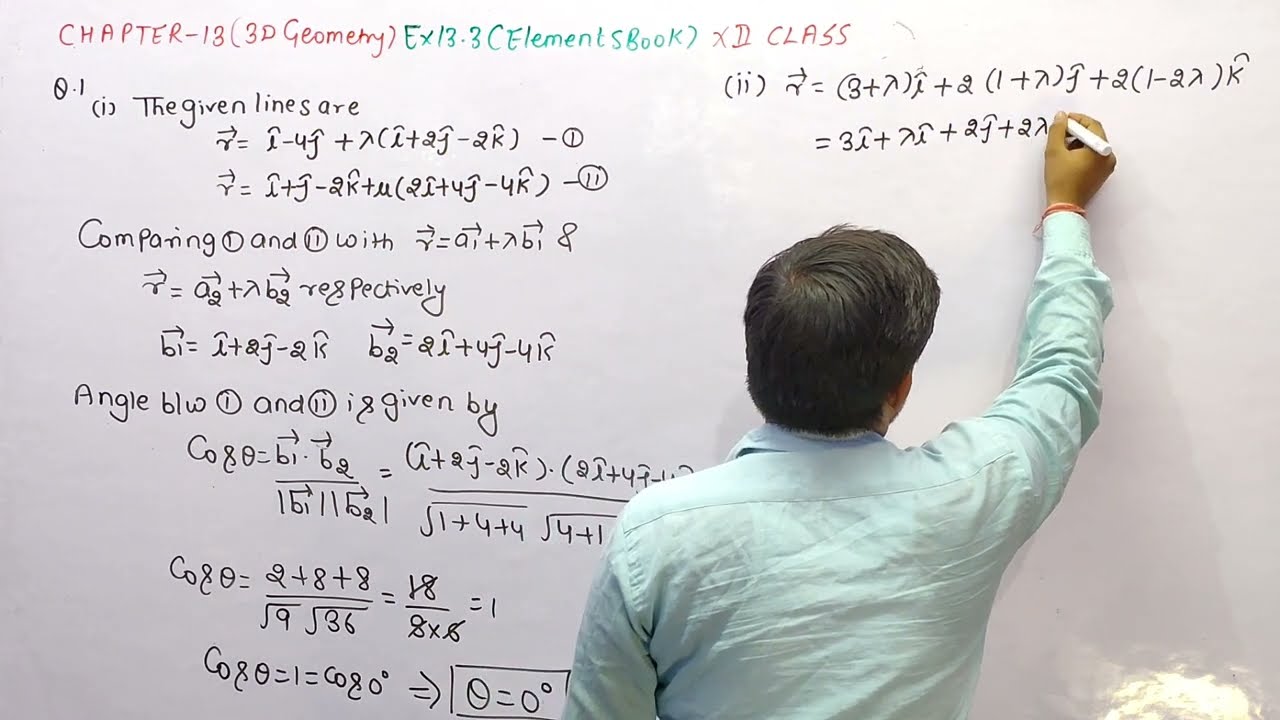 CHAPTER-13(3D Geometry) Ex13.3(ElementSBook) XII CLASS
Q.1 (i) The given lines are
r⃗ = î-4ĵ + λ(î+2ĵ-2k̂) - ①
r⃗ = î+ĵ-2k̂+μ(2î+4ĵ-4k̂) - Ⓘⓘ
Comparing ① and Ⓘⓘ with r⃗ = a⃗1+λb⃗1 &
r⃗ = a⃗2+λb⃗2 respectively
b⃗1 = î+2ĵ-2k̂ b⃗2 = 2î+4ĵ-4k̂
Angle b/w ① and Ⓘⓘ is given by
Cosθ = b⃗1·b⃗2 / |b⃗1||b⃗2| = (î+2ĵ-2k̂)·(2î+4ĵ-4k̂ / √1+4+4 √4+1
Cosθ = 2+8+8 / √9 √36 = 18 / 3×6 = 1
Cosθ=1=Cos0° ⇒ θ=0°
(ii) r⃗ = (3+λ)î+2(1+λ)ĵ+2(1-2λ)k̂
= 3î+λî+2ĵ+2λ